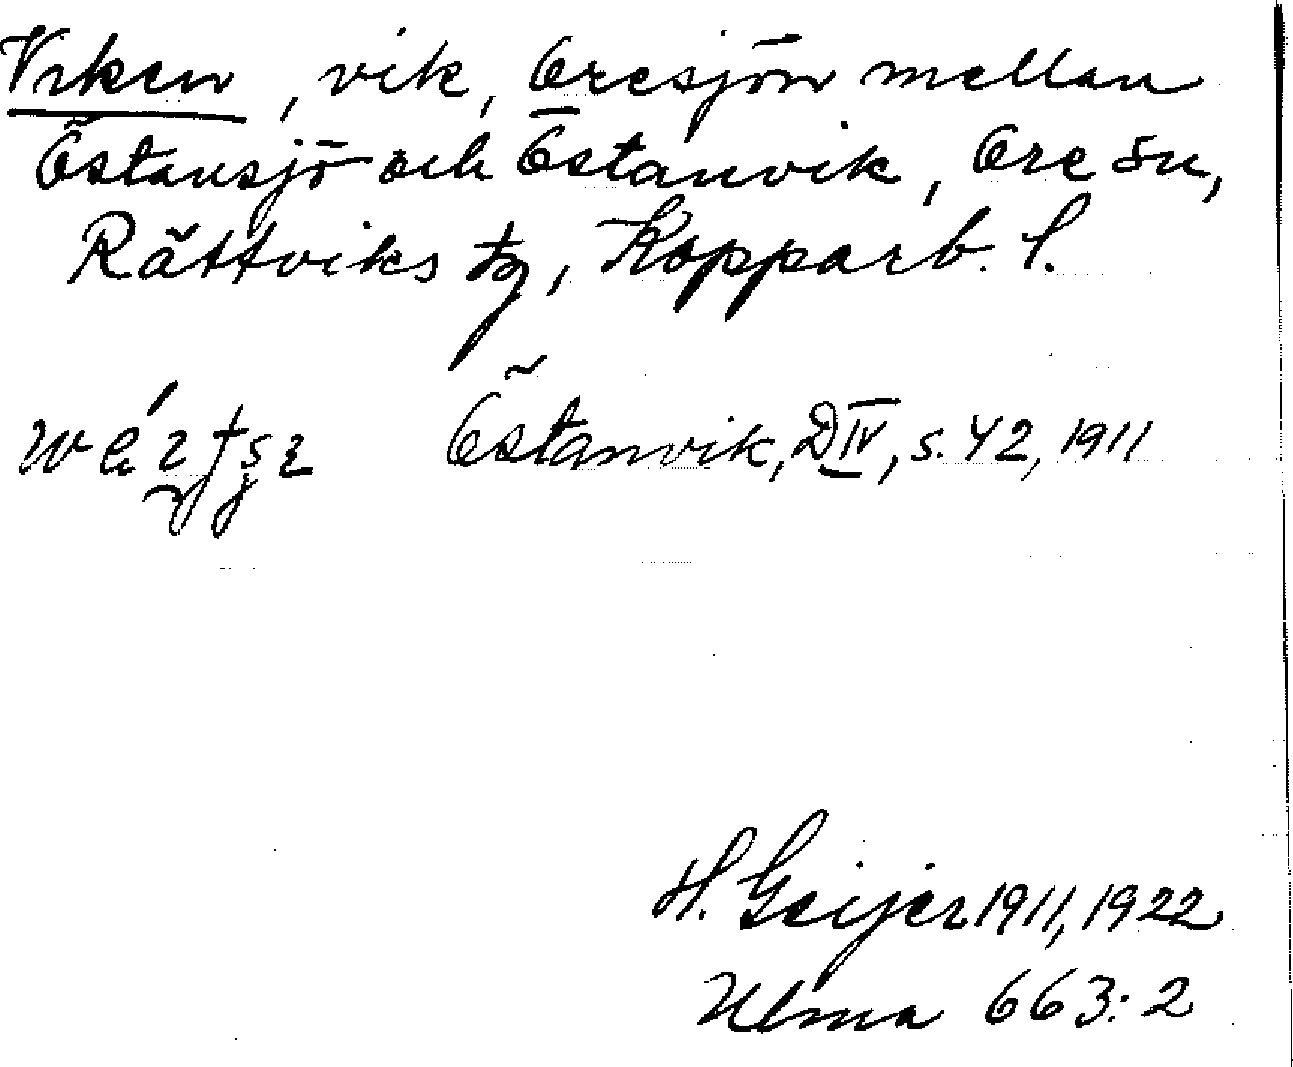 Viken, vik, Oresjön mellan
Östansjö och Östanvik, Ore sn,
Rättviks tg, Kopparb. l.
Östanvik, D IV, s. 42, 1911
H. Geijer 1911, 1922
Ulma 663:2